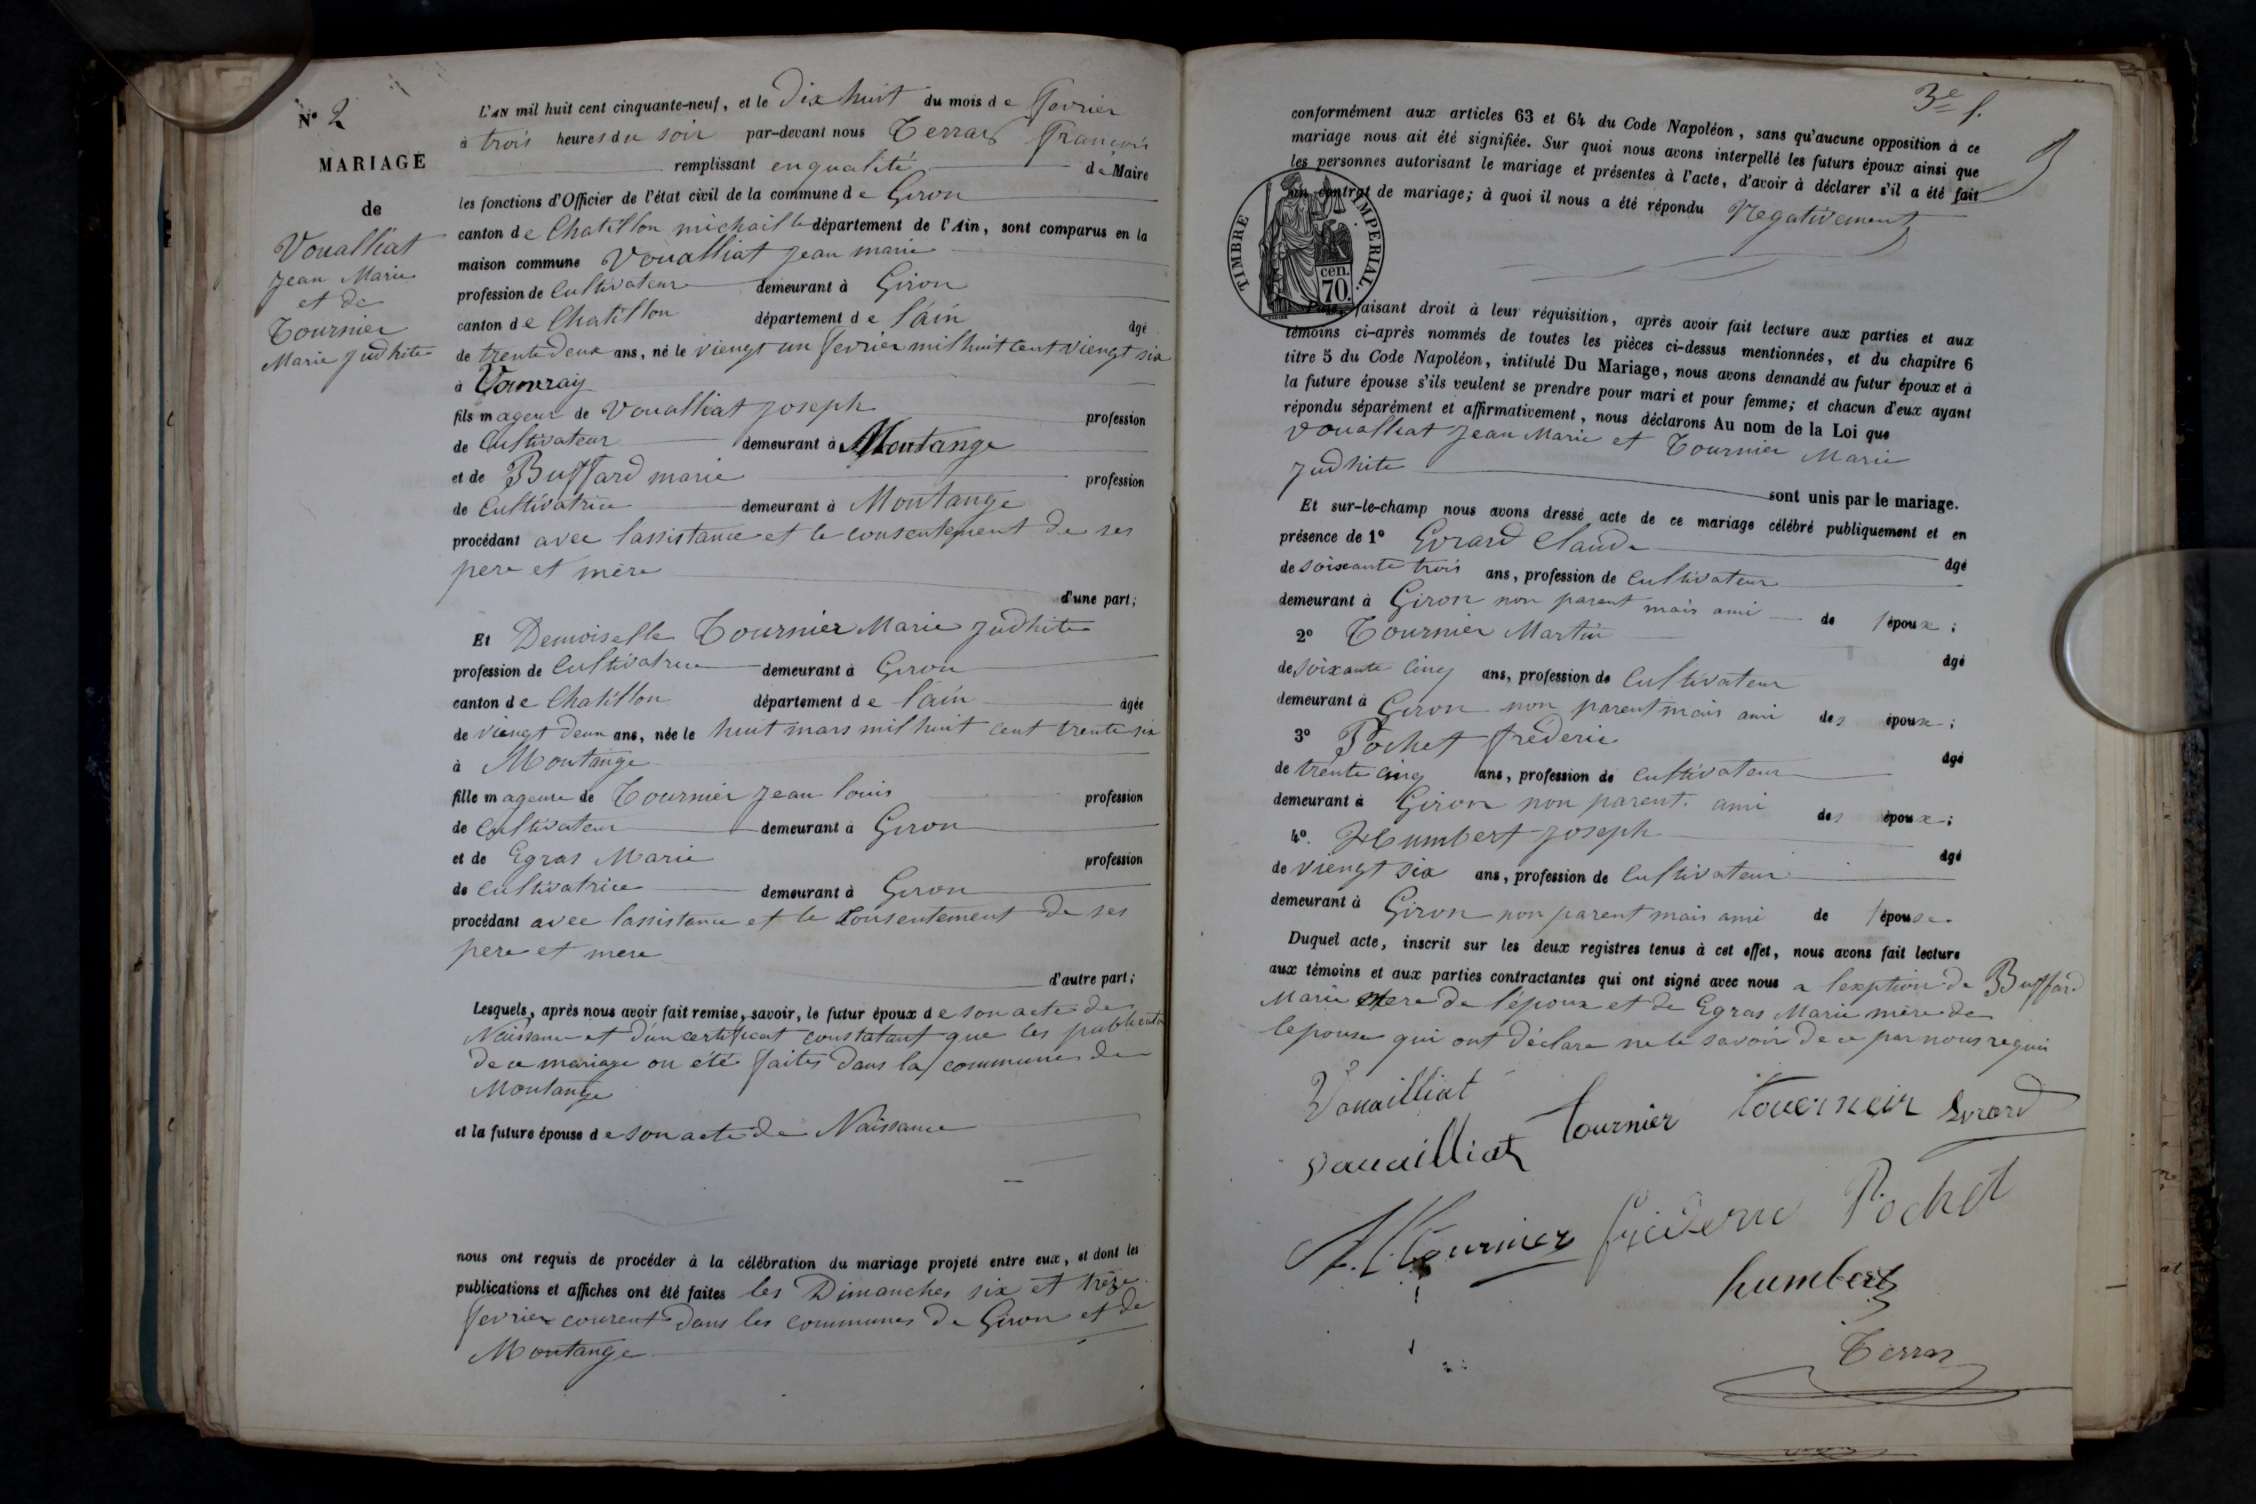 N° 2
MARIAGE
de
Voualliat
Jean Marie
et de
Tournier
Marie Judhite
L'AN mil huit cent cinquante-neuf, et le Dix huit du mois de fevrier
à trois heures du soir par-devant nous Terraz François
remplissant en qualité de Maire
les fonctions d'Officier de l'état civil de la commune de Giron
canton de Chatillon michaille département de l'Ain, sont comparus en la
maison commune Voualliat Jean marie
profession de Cultivateur demeurant à Giron
canton de Chatillon département de l'ain âgé
de trente deux ans, né le viengt un fevrier mil huit cent viengt six
à
fils mageur de Voualliat Joseph profession
de Cultivateur demeurant à Montange
et de Buffard marie profession
de Cultivatrice demeurant à Montange
procédant avec lassistance et le consentement de ses
pere et mère
d'une part;
Et Demoiselle Tournier Marie Judhite
profession de Cultivatrice demeurant à Giron
canton de Chatillon département de l'ain âgée
de viengt deux ans, née le huit mars mil huit cent trente six
à Montange
fille mageure de Tournier Jean louis profession
de Cultivateur demeurant à Giron
et de Egras Marie profession
de cultivatrice demeurant à Giron
procédant avec lassistance et le Consentement de ses
pere et mere
d'autre part;
Lesquels, après nous avoir fait remise, savoir, le futur époux de son acte de
Naissance et d'un certificat constatant que les publication
de ce mariage on été faites dans la commune de
Montange
et la future épouse de son acte de Naissance
nous ont requis de procéder à la célébration du mariage projeté entre eux, et dont les
publications et affiches ont été faites les Dimanches six et trèze
fevrier courent dans les communes de Giron et de
Montange
3e f.
conformément aux articles 63 et 64 du Code Napoléon, sans qu'aucune opposition à ce
mariage nous ait été signifiée. Sur quoi nous avons interpellé les futurs époux ainsi que
les personnes autorisant le mariage et présentes à l'acte, d'avoir à déclarer s'il a été fait
un contrat de mariage; à quoi il nous a été répondu Negativement
TIMBRE IMPERIAL.
cen.
70.
Puis, faisant droit à leur réquisition, après avoir fait lecture aux parties et aux
témoins ci-après nommés de toutes les pièces ci-dessus mentionnées, et du chapitre 6
titre 5 du Code Napoléon, intitulé Du Mariage, nous avons demandé au futur époux et à
la future épouse s'ils veulent se prendre pour mari et pour femme; et chacun d'eux ayant
répondu séparément et affirmativement, nous déclarons Au nom de la Loi que
Voualliat Jean Marie et Tournier Marie
Judhite
sont unis par le mariage.
Et sur-le-champ nous avons dressé acte de ce mariage célébré publiquement et en
présence de 1° Evrard Claude âgé
de soixante trois ans, profession de Cultivateur
demeurant à Giron non parent mais ami de l'époux;
2° Tournier Martin âgé
de soixante Cinq ans, profession de Cultivateur
demeurant à Giron non parent mais ami des époux;
3° Pochet fréderic âgé
de trente cinq ans, profession de cultivateur
demeurant à Giron non parent. ami des époux;
4°. Humbert Joseph âgé
de viengt six ans, profession de Cultivateur
demeurant à Giron non parent mais ami de l'épouse
Duquel acte, inscrit sur les deux registres tenus à cet effet, nous avons fait lecture
aux témoins et aux parties contractantes qui ont signé avec nous a lexption de Buffard
Marie mere de l'époux et de Egras Marie mère de
lepouse qui ont déclare ne le savoir de ce par nous requis
Vouailliat
Vouailliat Tournier Tournier Evrard
Tournier fréderic Pochet
humbert
Terraz